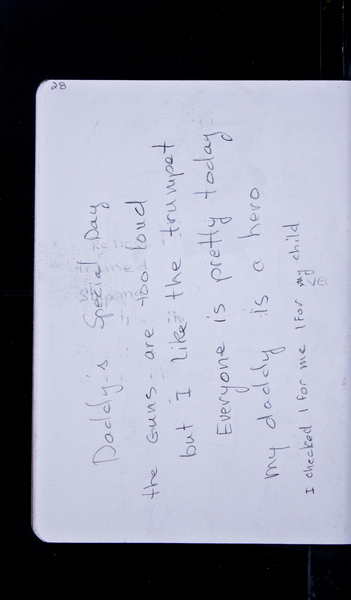 28
Daddy's Special Day
the guns are too loud
but I like the trumpet
Everyone is pretty today
my daddy is a hero
I checked 1 for me 1 for my child